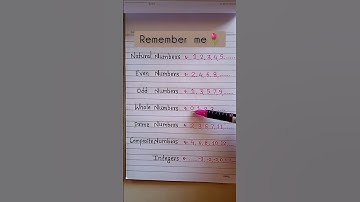 Remember me🌷
Natural Numbers → 1, 2, 3, 4, 5......
Even Numbers → 2, 4, 6, 8......
Odd Numbers → 1, 3, 5, 7, 9......
Whole Numbers → 0, 1, 2, 3
Prime Numbers → 2, 3, 5, 7, 11
Composite Numbers → 4, 6, 8, 10, 12
Integers →